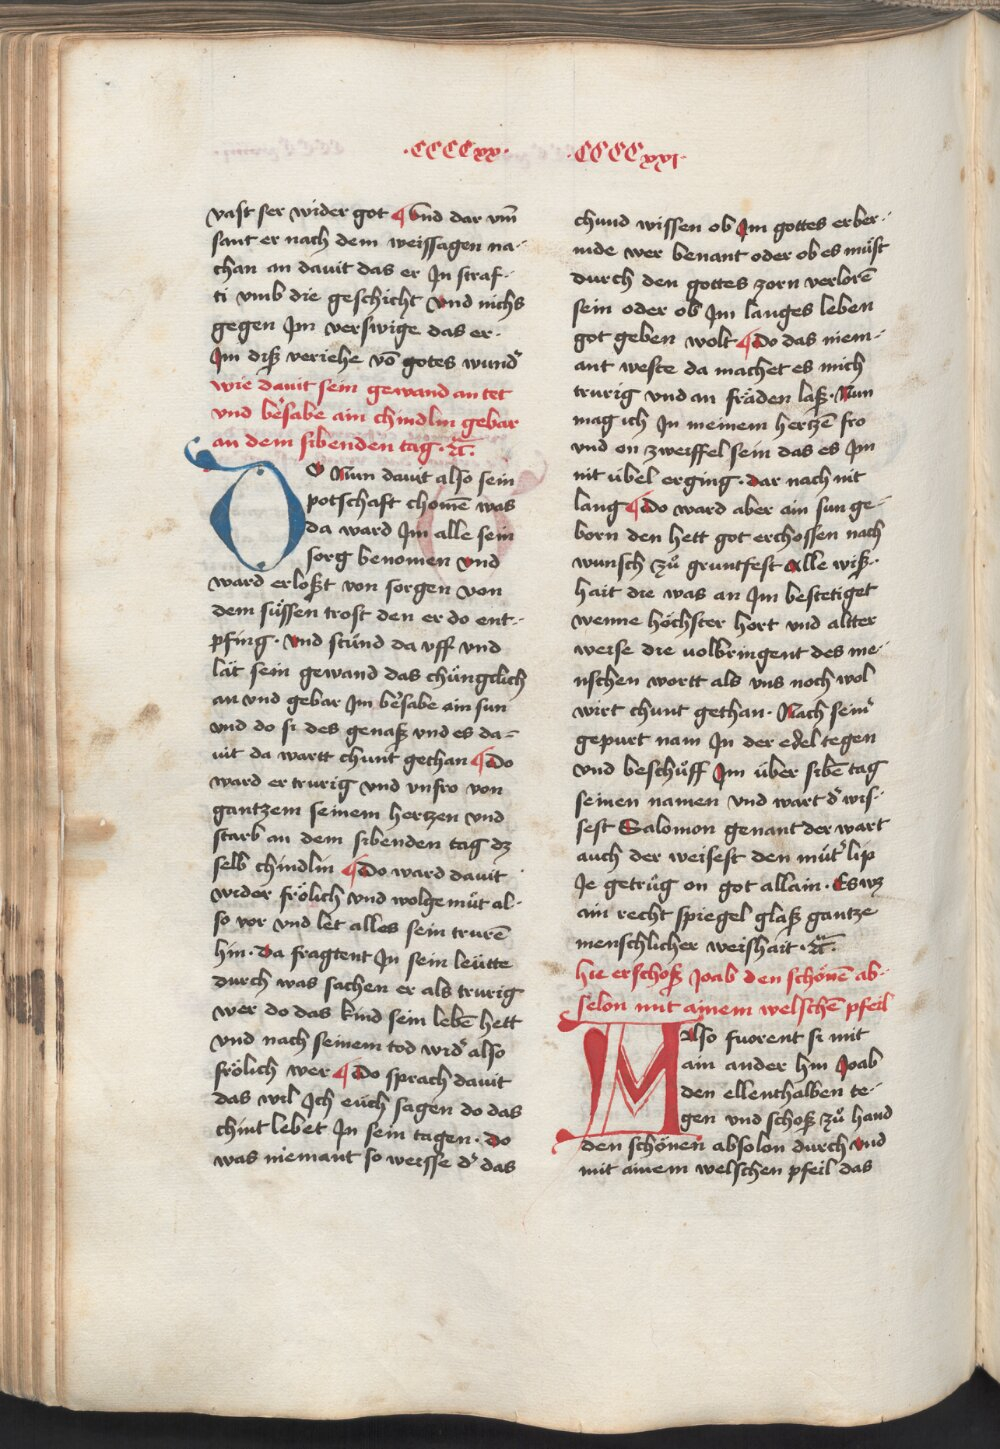 ·CCCCxx·
·CCCCxxj·
vast ser wider got ¶ Und dar vm̄
sant er nach dem weissagen na-
than an dauit das er Jn straf-
ti vmb die geschicht Vnd nichs
gegen Jm verswige das er
Jm diß veriehe vō gotes wund᷑
wie dauit sein gewand an tet
vnd be᷑sabe ain chindlin gebar
an dem sibenden tag · ꝛc̄ ·
DO Nun dauit also sein
potschaft chomē was
da ward Jm alle sein
sorg benomen Vnd
ward erloßt von sorgen von
dem süssen trost den er do ent-
pfing · Vnd stůnd da vff vnd
lät sein gewand das chüngclich
an vnd gebar Jm be᷑sabe ain sun
vnd do si des genaß vnd es da-
uit da wartt chunt gethan ¶ Do
ward er trurig vnd vnfro von
gantzem seinem hertzen vnd
starb an dem sibenden tag dz
selb chindlin ¶ Do ward dauit
wider frölich vnd wolgemůt al-
so vor vnd let alles sein trurē
hin · Da fragtent Jn sein leütte
durch was sachen er als trurig
wer do das kind sein lebē hett
vnd nach seinem tod wid᷑ also
frölich wer ¶ Do sprach dauit
das wil Jch euch sagen do das
chint lebet Jn sein tagen · Do
was niemant so weisse d᷑ das
chund wissen ob Jm gottes erber-
mde wer benant oder ob es müst
durch den gottes zorn verlorē
sein oder ob Jm langes leben
got geben wolt ¶ Do das niem-
ant weste da machet es mich
trurig vnd an fräden laß · Nun
mag ich Jn meinem hertzē fro
vnd on zweiffel sein das es Jm
nit übel erging · Dar nach nit
lang ¶ Do ward aber ain sun ge-
born den hett got erchossen nach
wunsch zů gruntfest Alle wiß-
hait die was an Jm bestetiget
wenne höchster hort vnd altter
weise die uolbringent des me-
nschen wortt als vns noch wol
wirt chunt gethan · Nach sein᷑
gepurt nam Jn der edel tegen
vnd beschůff Jm über sibē tag
seinen namen vnd wart d᷑ wis-
sest Salomon genant der wart
auch der weisest den můt᷑ lip
Je getrůg on got allain · Es wz
ain recht spiegel glaß gantze
menschlicher weishait · ꝛc̄ ·
hie erschoß Joab den schönē ab-
selon mit ainem welschē pfeil
MAlso fuorent si mit
ain ander hin Joab
den ellenthalben te-
gen vnd schoß zů hand
den schönen absolon durch Vnd
mit ainem welschen pfeil das